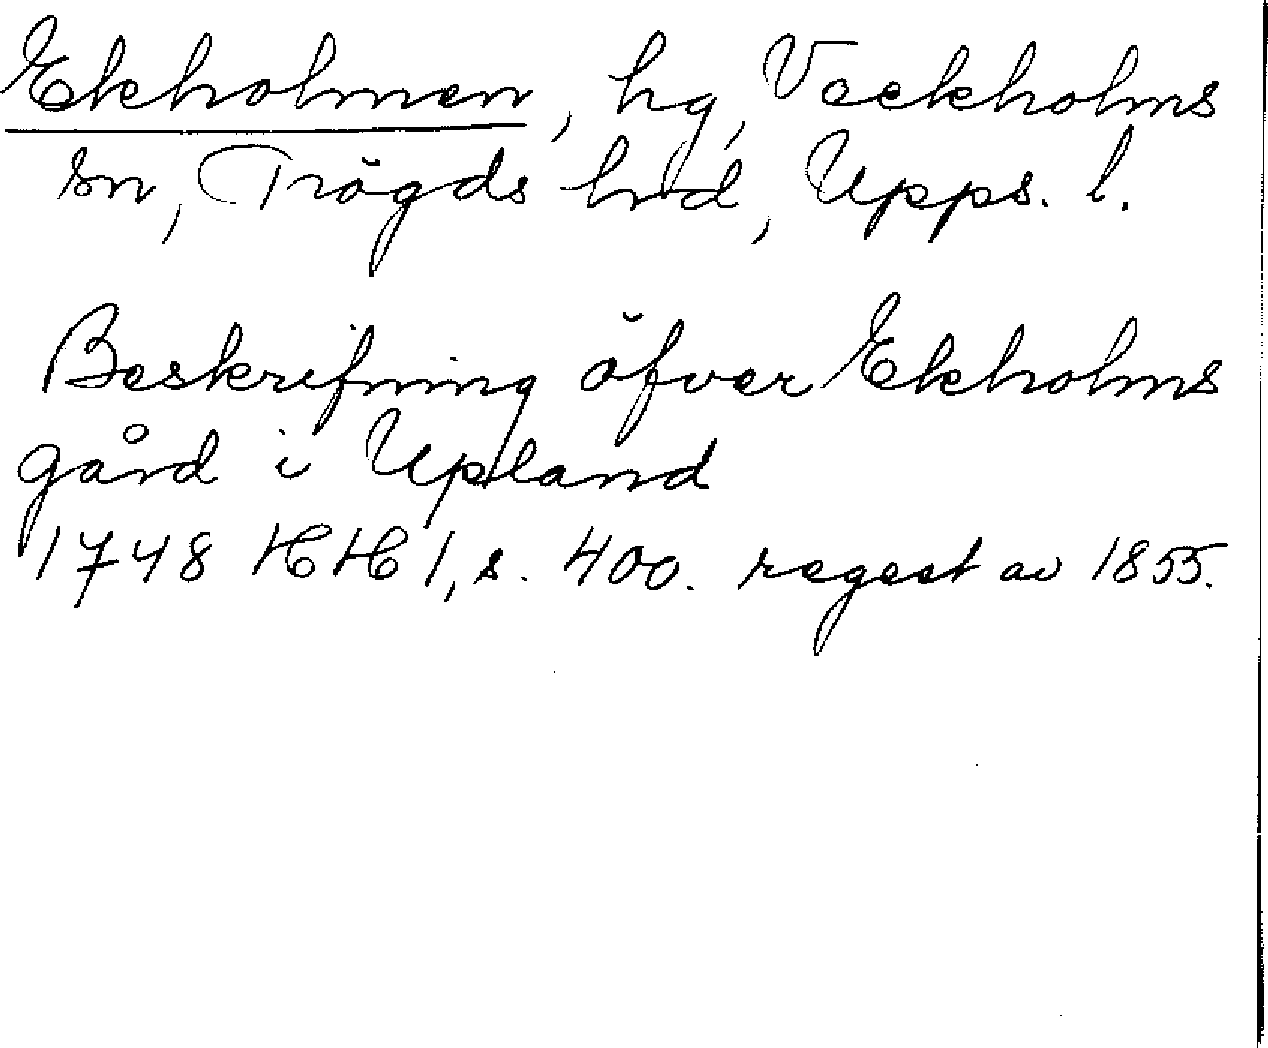 Ekholmen, hg, Veckholms
sn, Trögds hd, Upps. l.
Beskrifning öfver Ekholms
gård i Upland
1748 HH 1, s. 400. regest av 1855.